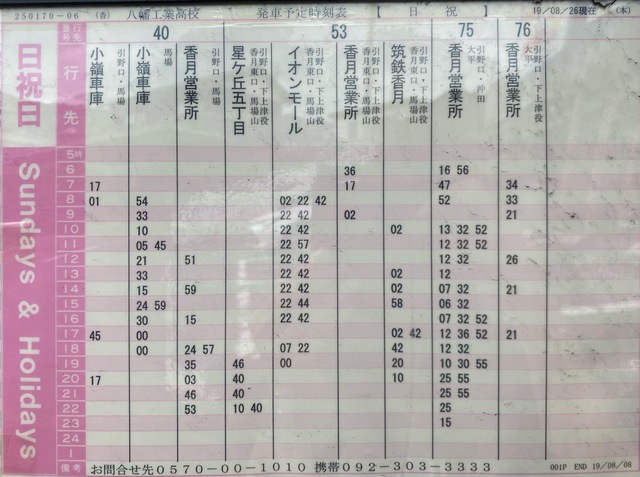 250170-06 (香) 八幡工業高校 発車予定時刻表 【 日 祝 】 19/08/26現在 (木)
行先番号 40 53 75 76
行先
小嶺車庫 引野口・馬場
小嶺車庫 馬場
香月営業所 馬場
星ケ丘五丁目 引野口・下上津役 香月東口・馬場山
イオンモール 引野口・下上津役 香月東口・馬場山
香月営業所 引野口・下上津役
筑鉄香月 引野口・下上津役 香月東口・馬場山
香月営業所 引野口・沖田 大平
香月営業所 引野口・下上津役 大平
日祝日 Sundays & Holidays
5時
6 36 16 56
7 17 17 47 34
8 01 54 02 22 42 52 33
9 33 22 42 02 21
10 10 22 42 02 13 32 52
11 05 45 22 57 12 32 52
12 21 51 22 42 12 32 26
13 33 22 42 02 12
14 15 59 22 42 02 07 32 21
15 24 59 22 44 58 06 32
16 30 15 22 42 07 32 52
17 45 00 02 42 12 36 52 21
18 00 24 57 07 22 42 12 32
19 35 46 00 20 10 30 55
20 17 03 40 10 25 55
21 46 40 25 55
22 53 10 40 25
23 15
24
1
備考 お問合せ先0570-00-1010 携帯092-303-3333 001P END 19/08/08